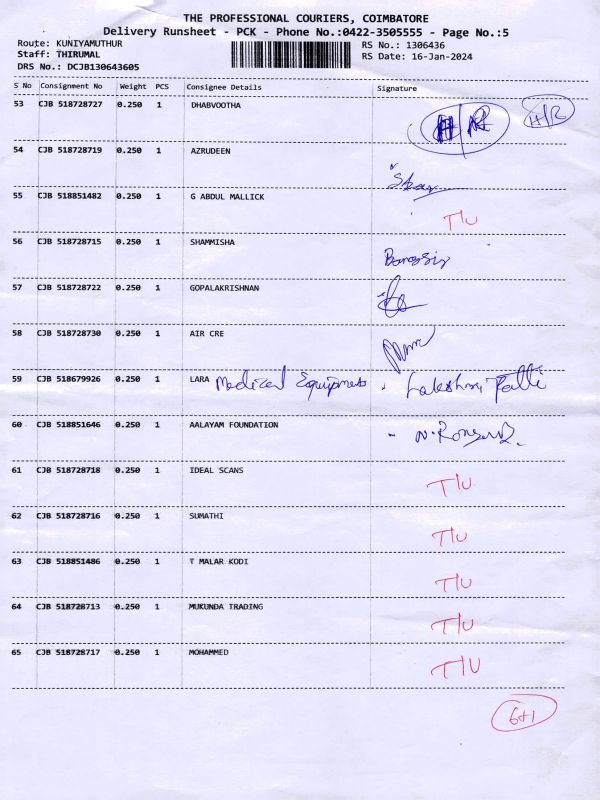 THE PROFESSIONAL COURIERS, COIMBATORE
Delivery Runsheet - PCK - Phone No.:0422-3505555 - Page No.:5
Route: KUNIYAMUTHUR RS No.: 1306436
Staff: THIRUMAL RS Date: 16-Jan-2024
DRS No.: DCJB130643605
S No Consignment No Weight PCS Consignee Details Signature
53 CJB 518728727 0.250 1 DHABVOOTHA
54 CJB 518728719 0.250 1 AZRUDEEN
55 CJB 518851482 0.250 1 G ABDUL MALLICK T/U
56 CJB 518728715 0.250 1 SHAMMISHA
57 CJB 518728722 0.250 1 GOPALAKRISHNAN
58 CJB 518728730 0.250 1 AIR CRE
59 CJB 518679926 0.250 1 LARA Medical
60 CJB 518851646 0.250 1 AALAYAM FOUNDATION
61 CJB 518728718 0.250 1 IDEAL SCANS T/U
62 CJB 518728716 0.250 1 SUMATHI T/U
63 CJB 518851486 0.250 1 T MALAR KODI T/U
64 CJB 518728713 0.250 1 MUKUNDA TRADING T/U
65 CJB 518728717 0.250 1 MOHAMMED T/U
6+1